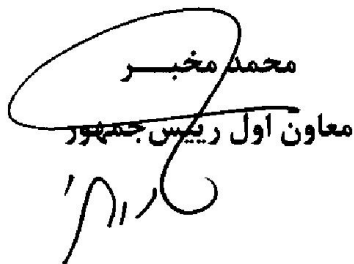 محمد مخبـــر
معاون اول رییس‌جمهور